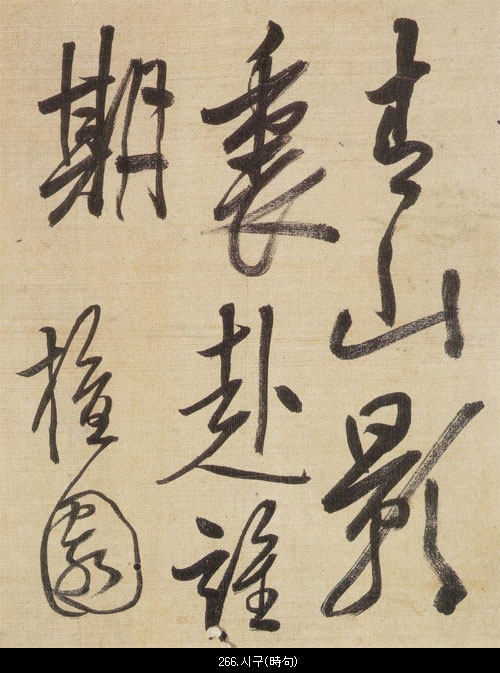 青山影
裏赴誰
期
檀園
266.시구(時句)